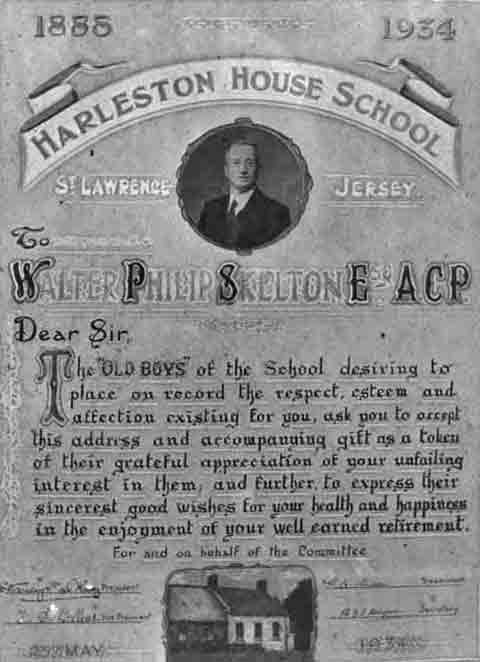 1888 1934
HARLESTON HOUSE SCHOOL
ST LAWRENCE JERSEY.
To
WALTER PHILIP SKELTON Esq A.C.P.
Dear Sir,
The "OLD BOYS" of the School desiring to
place on record the respect, esteem and
affection existing for you, ask you to accept
this address and accompanying gift as a token
of their grateful appreciation of your unfailing
interest in them, and further, to express their
sincerest good wishes for your health and happiness
in the enjoyment of your well earned retirement.
For and on behalf of the Committee
President
Treasurer
Vice President
Secretary
MAY